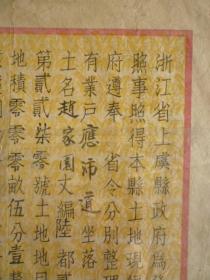 浙江省上虞縣政府為
照事照得本縣土地現
府遵奉 省令分別整理
有業戶應沛道坐落
土名趙家園丈編陸都貳
第貳貳柒零號土地
地積零零零畝伍分壹